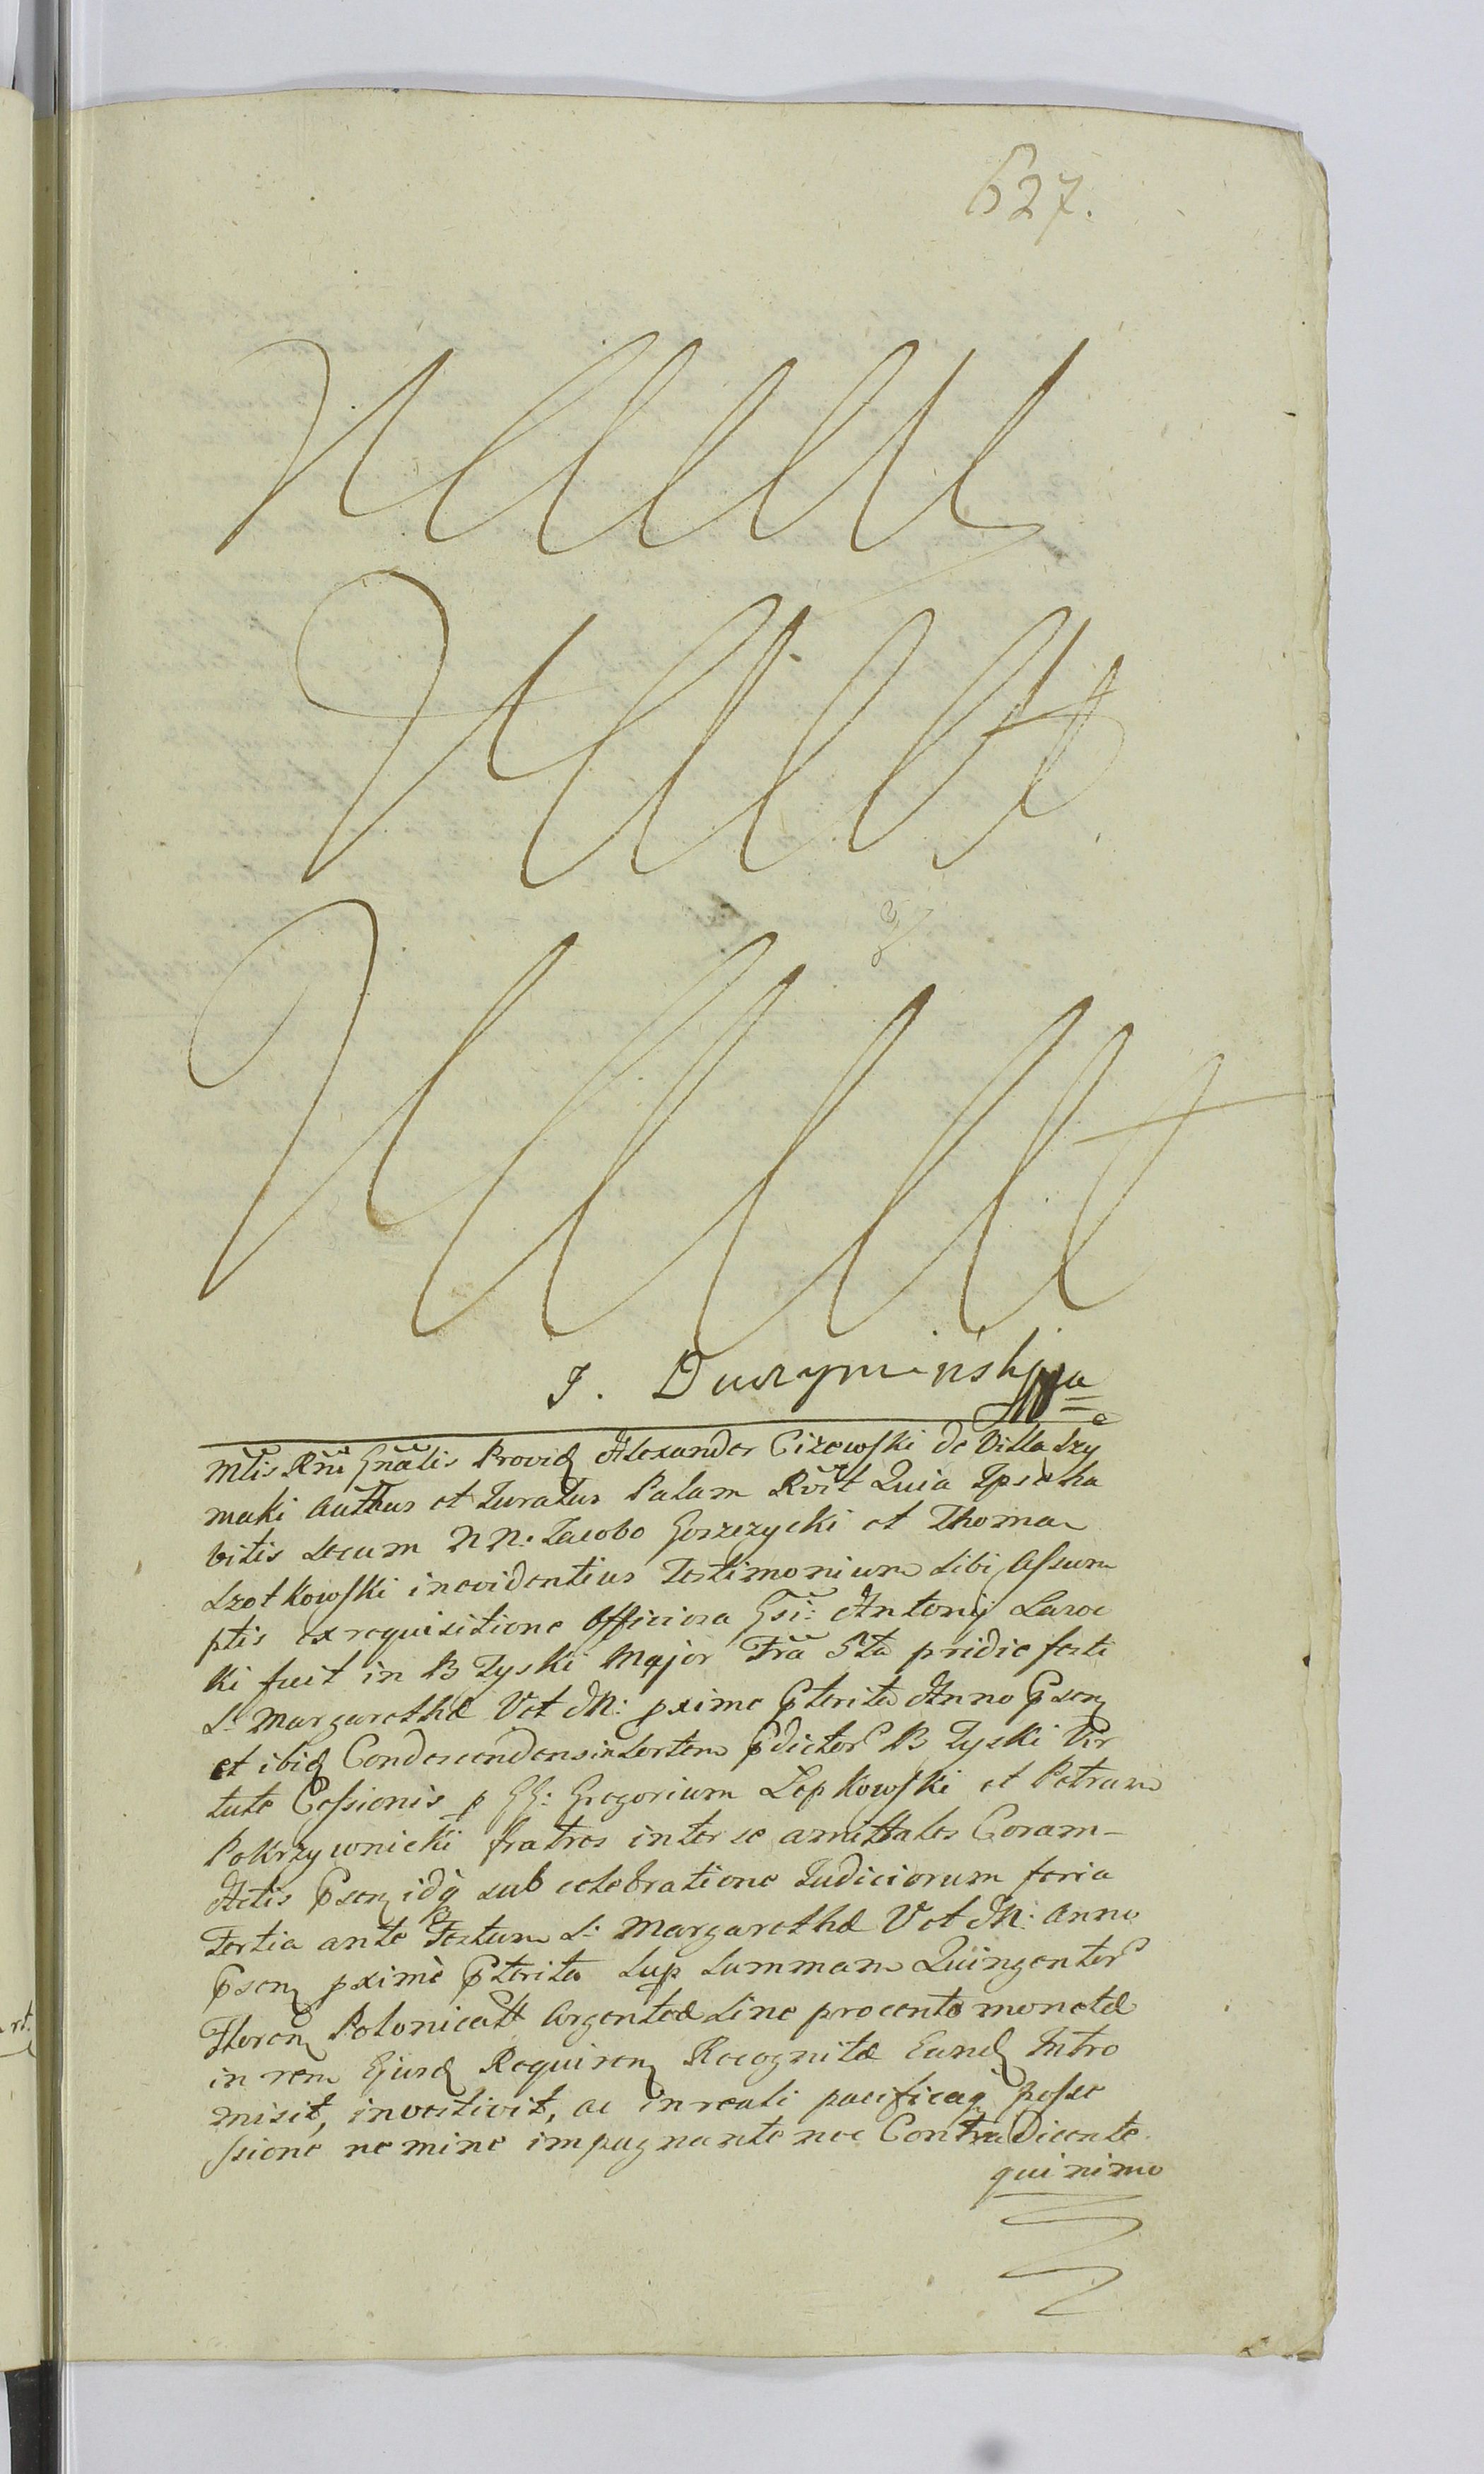 627.
J. Duczymiński mpa
Mlis Rni Gnalis Provid Alexander Cizewski de Villa Szy
maki Authus et Juratus Palam Rvit Quia Ipse ha
bitis Secum NN. Jacobo Gorzezycki et Thoma
Szotkowski inevidentius Testimonium Sibi Assum
ptis ex requisitione Officiosa Gsi: Antonij Saroc
ki fuit in B Zyski Major Fra 5ta pridie festi
S. Margarethæ V et M: pxime pterita Anno psen
et ibid Condescendens in Sortem pdictor B Zyski Vir
tute Cessionis p GG: Gregorium Lepkowski et Petrum
Pokrzywnicki fratres inter se amittales Coram
Actis psen idq sub celebratione Judiciorum feria
Tertia ante Festum S. Margarethæ V et M: Anno
psen pximè pterita Sup Summam Quingentor
Floren Polonicall Argenteæ Sine procento monetæ
in rem Ejusd Requiren Recognitæ Eund Intro
misit, investivit, ac in reali pacificaq posse
ssione nemine impugnante nec Contra Dicente
quinimo